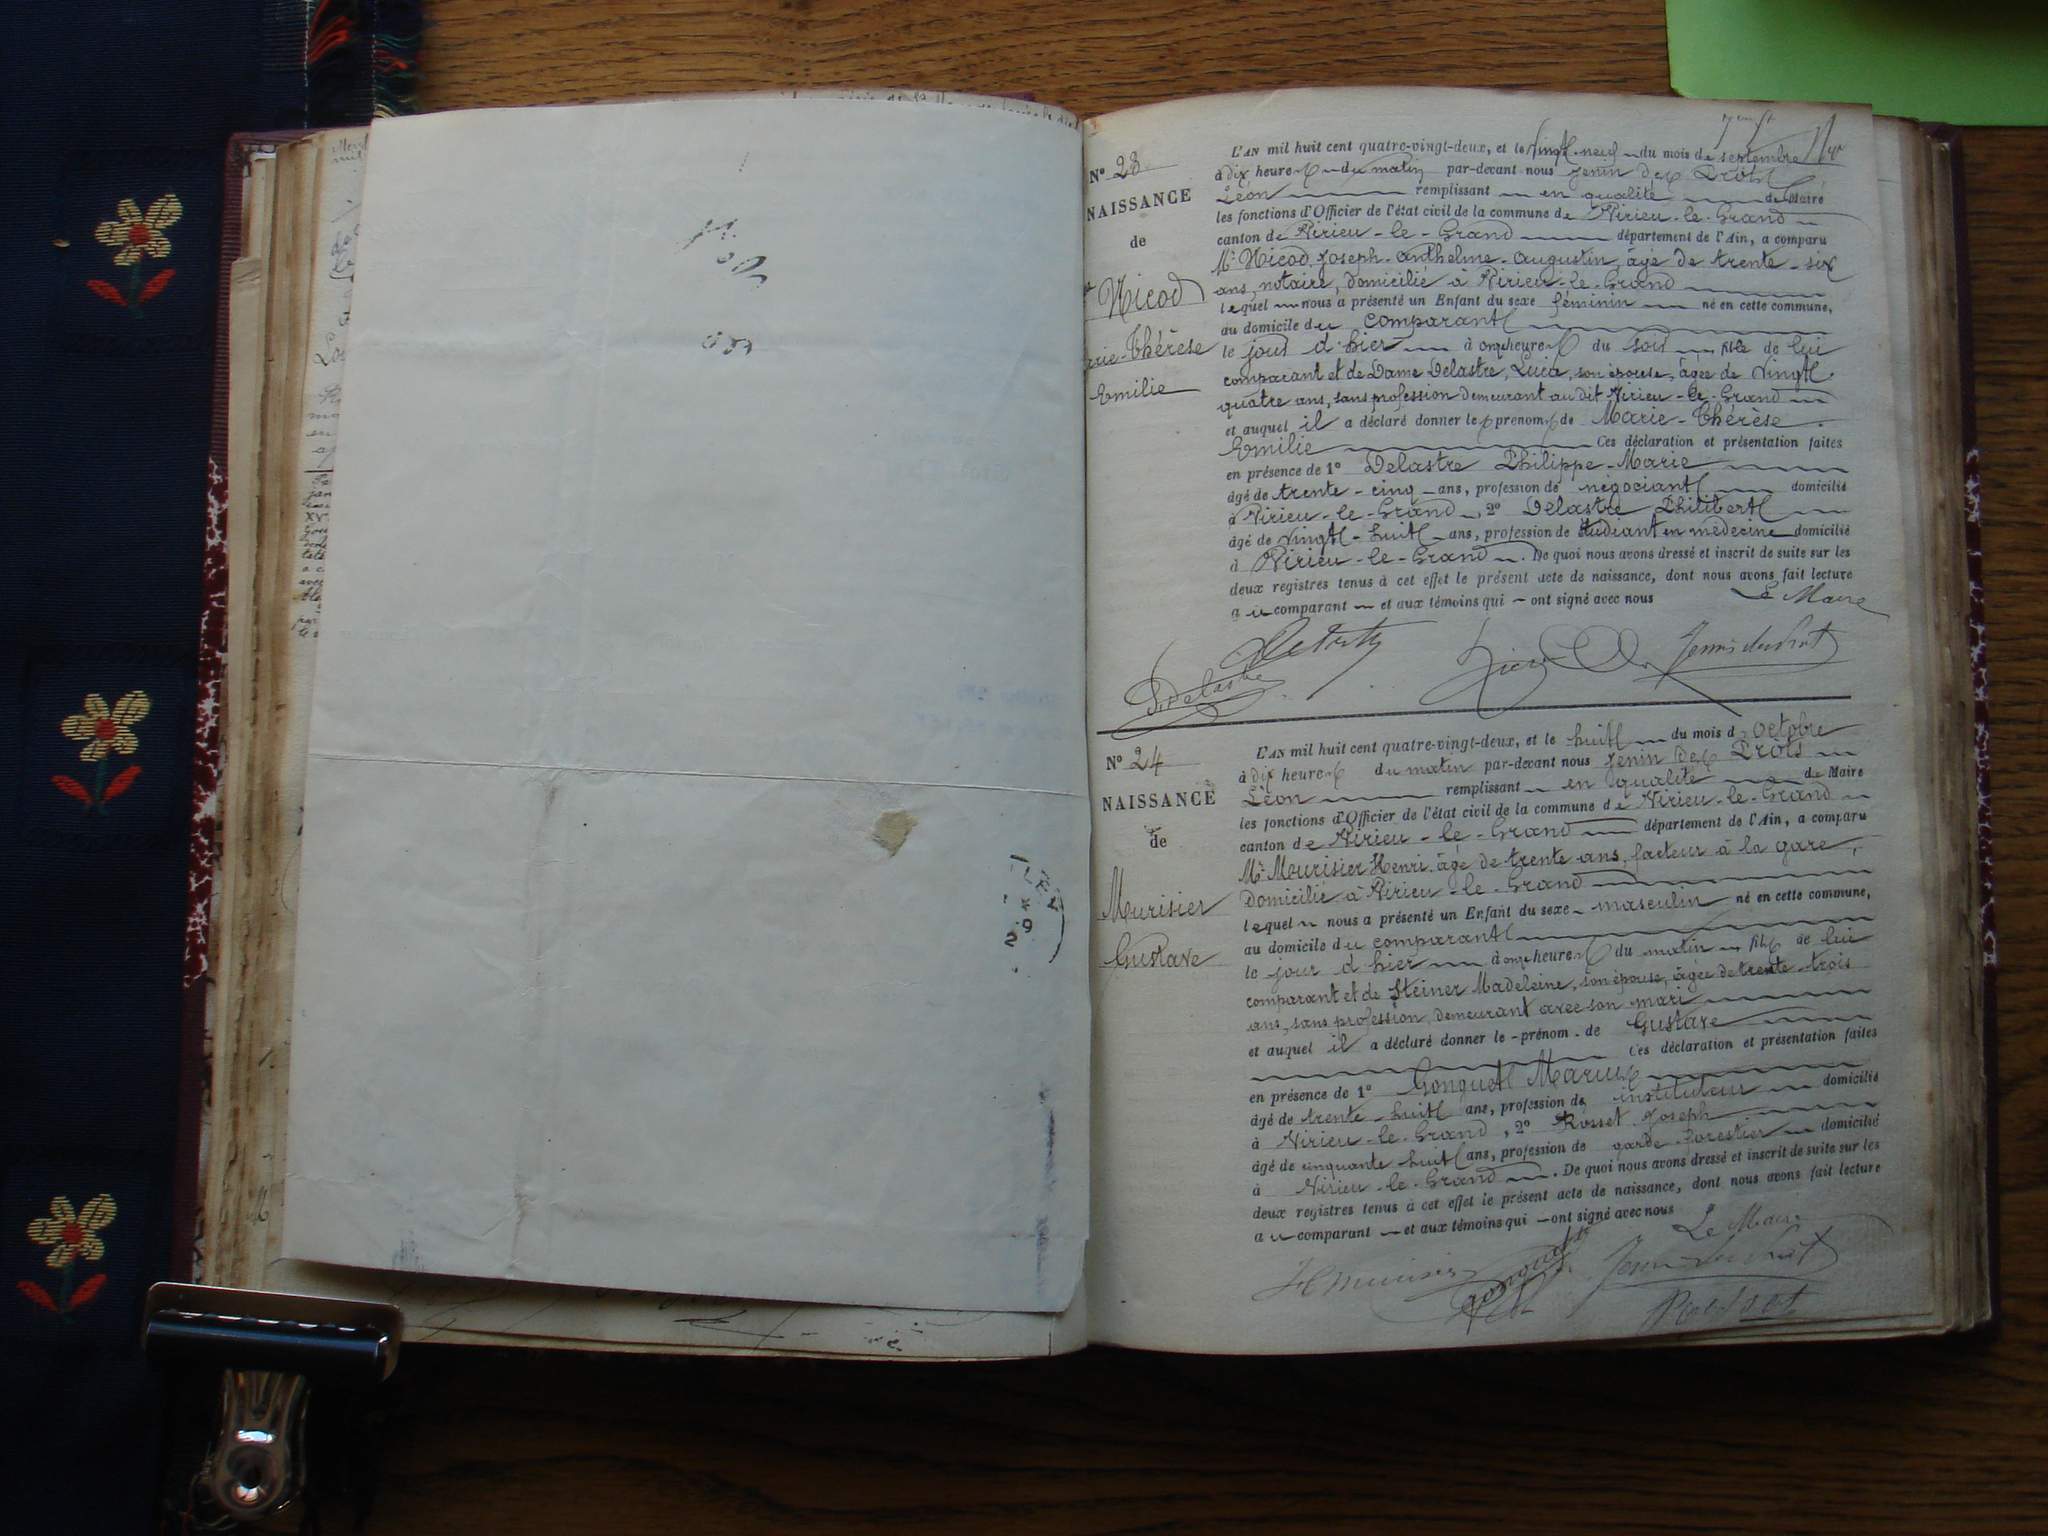 N° 23
NAISSANCE
de
Nicod
Marie-Thérèse
Emilie
L'AN mil huit cent quatre-vingt-deux, et le vingt-neuf du mois de septembre
à dix heures du matin par-devant nous Jenin des Drots
Léon remplissant en qualité de Maire
les fonctions d'Officier de l'état civil de la commune de Virieu-le-Grand
canton de Virieu-le-Grand département de l'Ain, a comparu
Mr Nicod, Joseph-Anthelme-Augustin, âgé de trente-six
ans, notaire, domicilié à Virieu-le-Grand
lequel nous a présenté un Enfant du sexe féminin né en cette commune,
au domicile du comparant
le jour d'hier à onze heures du soir fille de lui
comparant et de Dame Delastre, Lucie, son épouse, âgée de vingt-
quatre ans, sans profession demeurant au dit Virieu-le-Grand
et auquel il a déclaré donner les prénoms de Marie-Thérèse-
Emilie Ces déclaration et présentation faites
en présence de 1° Delastre Philippe-Marie
âgé de trente-cinq ans, profession de négociant domicilié
à Virieu-le-Grand, 2° Delastre Philibert
âgé de vingt-huit ans, profession de étudiant en médecine domicilié
à Virieu-le-Grand. De quoi nous avons dressé et inscrit de suite sur les
deux registres tenus à cet effet le présent acte de naissance, dont nous avons fait lecture
au comparant et aux témoins qui ont signé avec nous Le Maire
Delastre
N° 24
NAISSANCE
de
Murisier
Gustave
L'AN mil huit cent quatre-vingt-deux, et le huit du mois d'octobre
à dix heures du matin par-devant nous Jenin des Drots
Léon remplissant en qualité de Maire
les fonctions d'Officier de l'état civil de la commune de Virieu-le-Grand
canton de Virieu-le-Grand département de l'Ain, a comparu
Mr Meurisier Henri âgé de trente ans, facteur à la gare,
domicilié à Virieu-le-Grand
lequel nous a présenté un Enfant du sexe masculin né en cette commune,
au domicile du comparant
le jour d'hier à onze heures du matin fils de lui
comparant et de Steiner Madeleine, son épouse, âgée de trente-trois
ans, sans profession, demeurant avec son mari
et auquel il a déclaré donner le prénom de Gustave
Ces déclaration et présentation faites
en présence de 1° Gonguet Marius
âgé de trente-huit ans, profession de instituteur domicilié
à Virieu-le-Grand, 2° Rosset Joseph
âgé de cinquante-huit ans, profession de garde-forestier domicilié
à Virieu-le-Grand. De quoi nous avons dressé et inscrit de suite sur les
deux registres tenus à cet effet le présent acte de naissance, dont nous avons fait lecture
au comparant et aux témoins qui ont signé avec nous Le Maire
H Murisier
Rosset